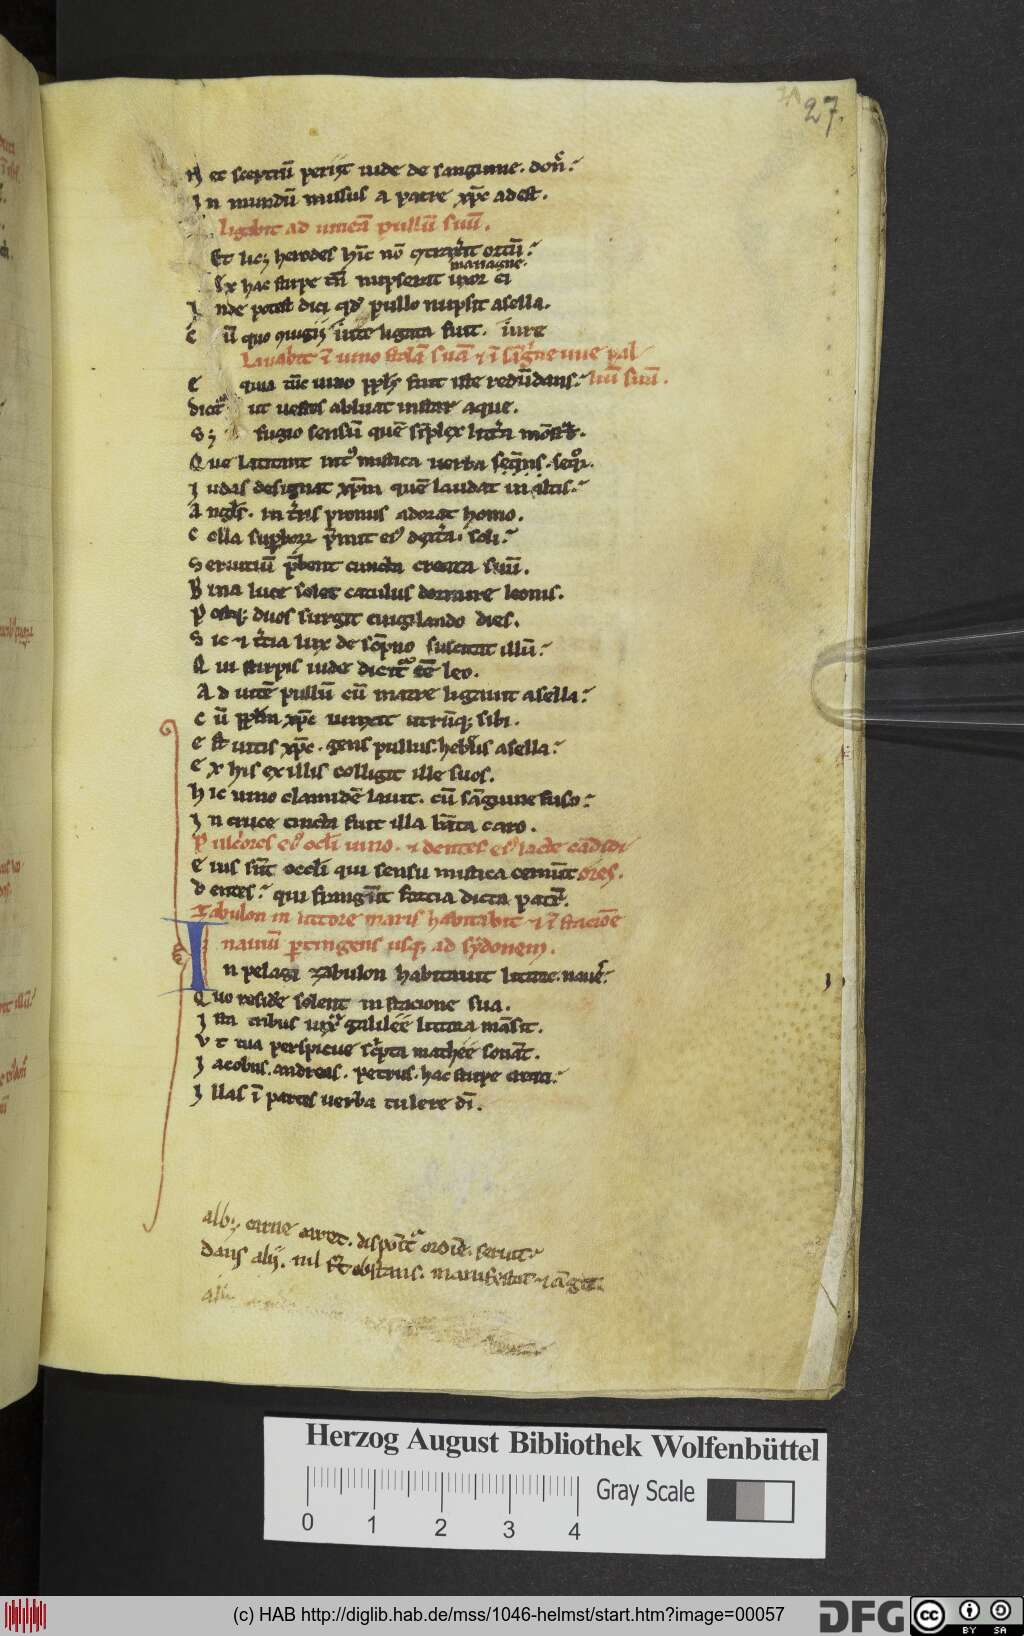 27.
N ec sceptrū periit iude de sanguine. donec
I n mundū missus a patre xp̄c adest.
ligabit ad uineā pullū suū.
Et licȝ herodes hīc nō ꝯtraxerit ortū
mariagne.
Ex hac stirpe tn̄ nupserat uxor ei
I nde potest dici qd' pullo nupsit asella.
C ū quo ꝯiugii iure ligata fuit. iure
Lauabit ī uino stolā suā ⁊ ī sāguine uue pal
quia tūc uino ppl's fuit iste redūdans. liū suū.
dicit' ut uestes abluat instar aque.
fugio sensū quē simplex littera mōstrat.
Que latitant int' mistica uerba sequens. sequor.
I udas designat xp̄m quē laudat in altis.
A ngl's. in t'ris pronus adorat homo.
C olla superborum p̄mit ei' dextera. soli.
S eruitiū p̄bent cuncta creata suū.
B ina luce solet catulus dormire leonis.
P ostqȝ duos surgit euigilando dies.
S ic ⁊ t'cia lux de sōpno suscitat illū.
Q ui stirpis iude dicit' esse leo.
A d uitē pullū cū matre ligauit asella.
C ū pplm xp̄c uinxit utrūqȝ sibi.
E st uitis xp̄c. gens pullus. hebreus asella.
E x his ex illis colligit ille suos.
H ic uino clamidē lauit. cū sāguine fuso.
I n cruce cincta fuit illa bāta caro.
P ulc'ores ei' ocl'i uino. ⁊ dentes ei' lacte cādidi
E ius sūt occl'i qui sensu mistica cernūt ores.
D entes. qui frangūt fortia dicta patrū.
Zabulon in littore maris habitabit ⁊ ī stacione
nauiū p̱tingens usqȝ ad sydonem.
I n pelagi zabulon habitauit littore. naues
Q uo residere solent in stacione sua.
I sta tribus iuxta galilee littora māsit.
V t tua perspicue sc'pta mathee sonāt.
I acobus. andreas. petrus. hac stirpe creati.
I llas ī partes uerba tulere dī.
albȝ carne caret. disponit' ordine. seruit
Dans alii. nil fert obstans. manifestat ⁊ āgit.
Herzog August Bibliothek Wolfenbüttel
0 1 2 3 4
Gray Scale
(c) HAB http://diglib.hab.de/mss/1046-helmst/start.htm?image=00057
DFG
cc
BY SA